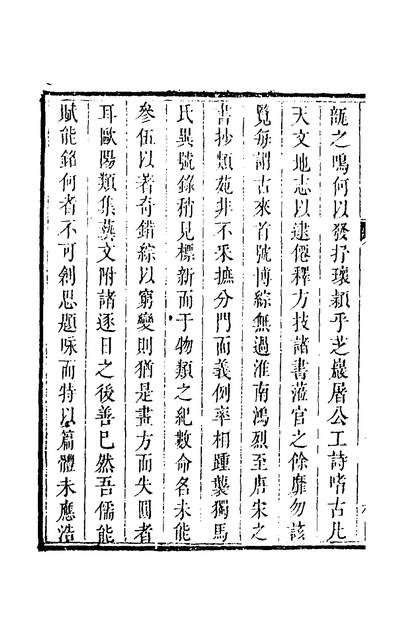 甌之鳴何以發抒瓌穎乎芝巖屠公工詩嗜古凡
天文地志以逮僊釋方技諸書蒞官之餘靡勿該
覽每謂古來首號博綜無過淮南鴻烈至唐宋之
書抄類苑非不釆摭分門而義例率相踵襲獨馬
氏異號錄稍見標新而于物類之紀數命名未能
參伍以著奇錯綜以窮變則猶是畫方而失圓者
耳歐陽類集冀文附諸逐日之後善已然吾儒能
賦能銘何者不可創思題咏而特以篇體未應浩